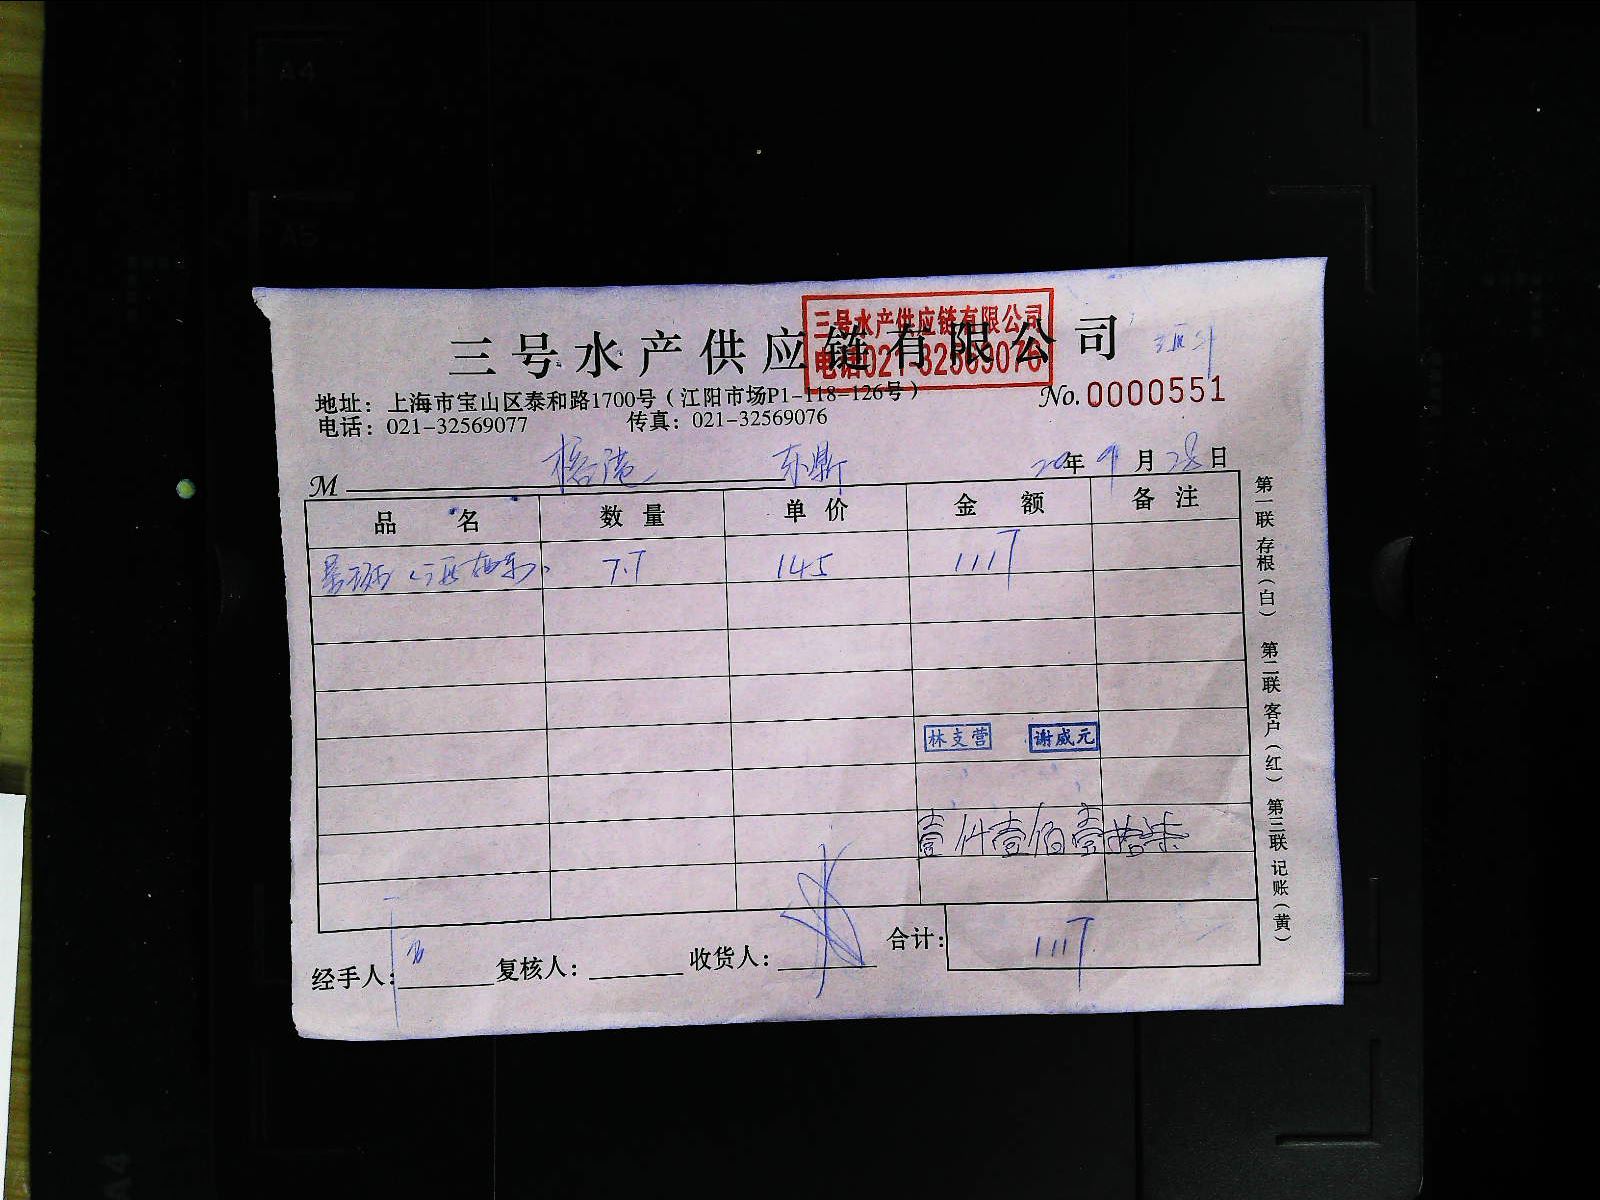 三号水产供应链有限公司
三号水产供应链有限公司
电话021-32569076
地址：上海市宝山区泰和路1700号（江阳市场P1-118-126号）
No.0000551
电话：021-32569077 传真：021-32569076
M 东鼎 20年9月28日
品名 数量 单价 金额 备注
7.7 145 1117
林支营 谢威元
壹仟壹佰壹拾柒
合计：1117
经手人： 复核人： 收货人：
第一联 存根（白） 第二联 客户（红） 第三联 记账（黄）
A4
A5
A4